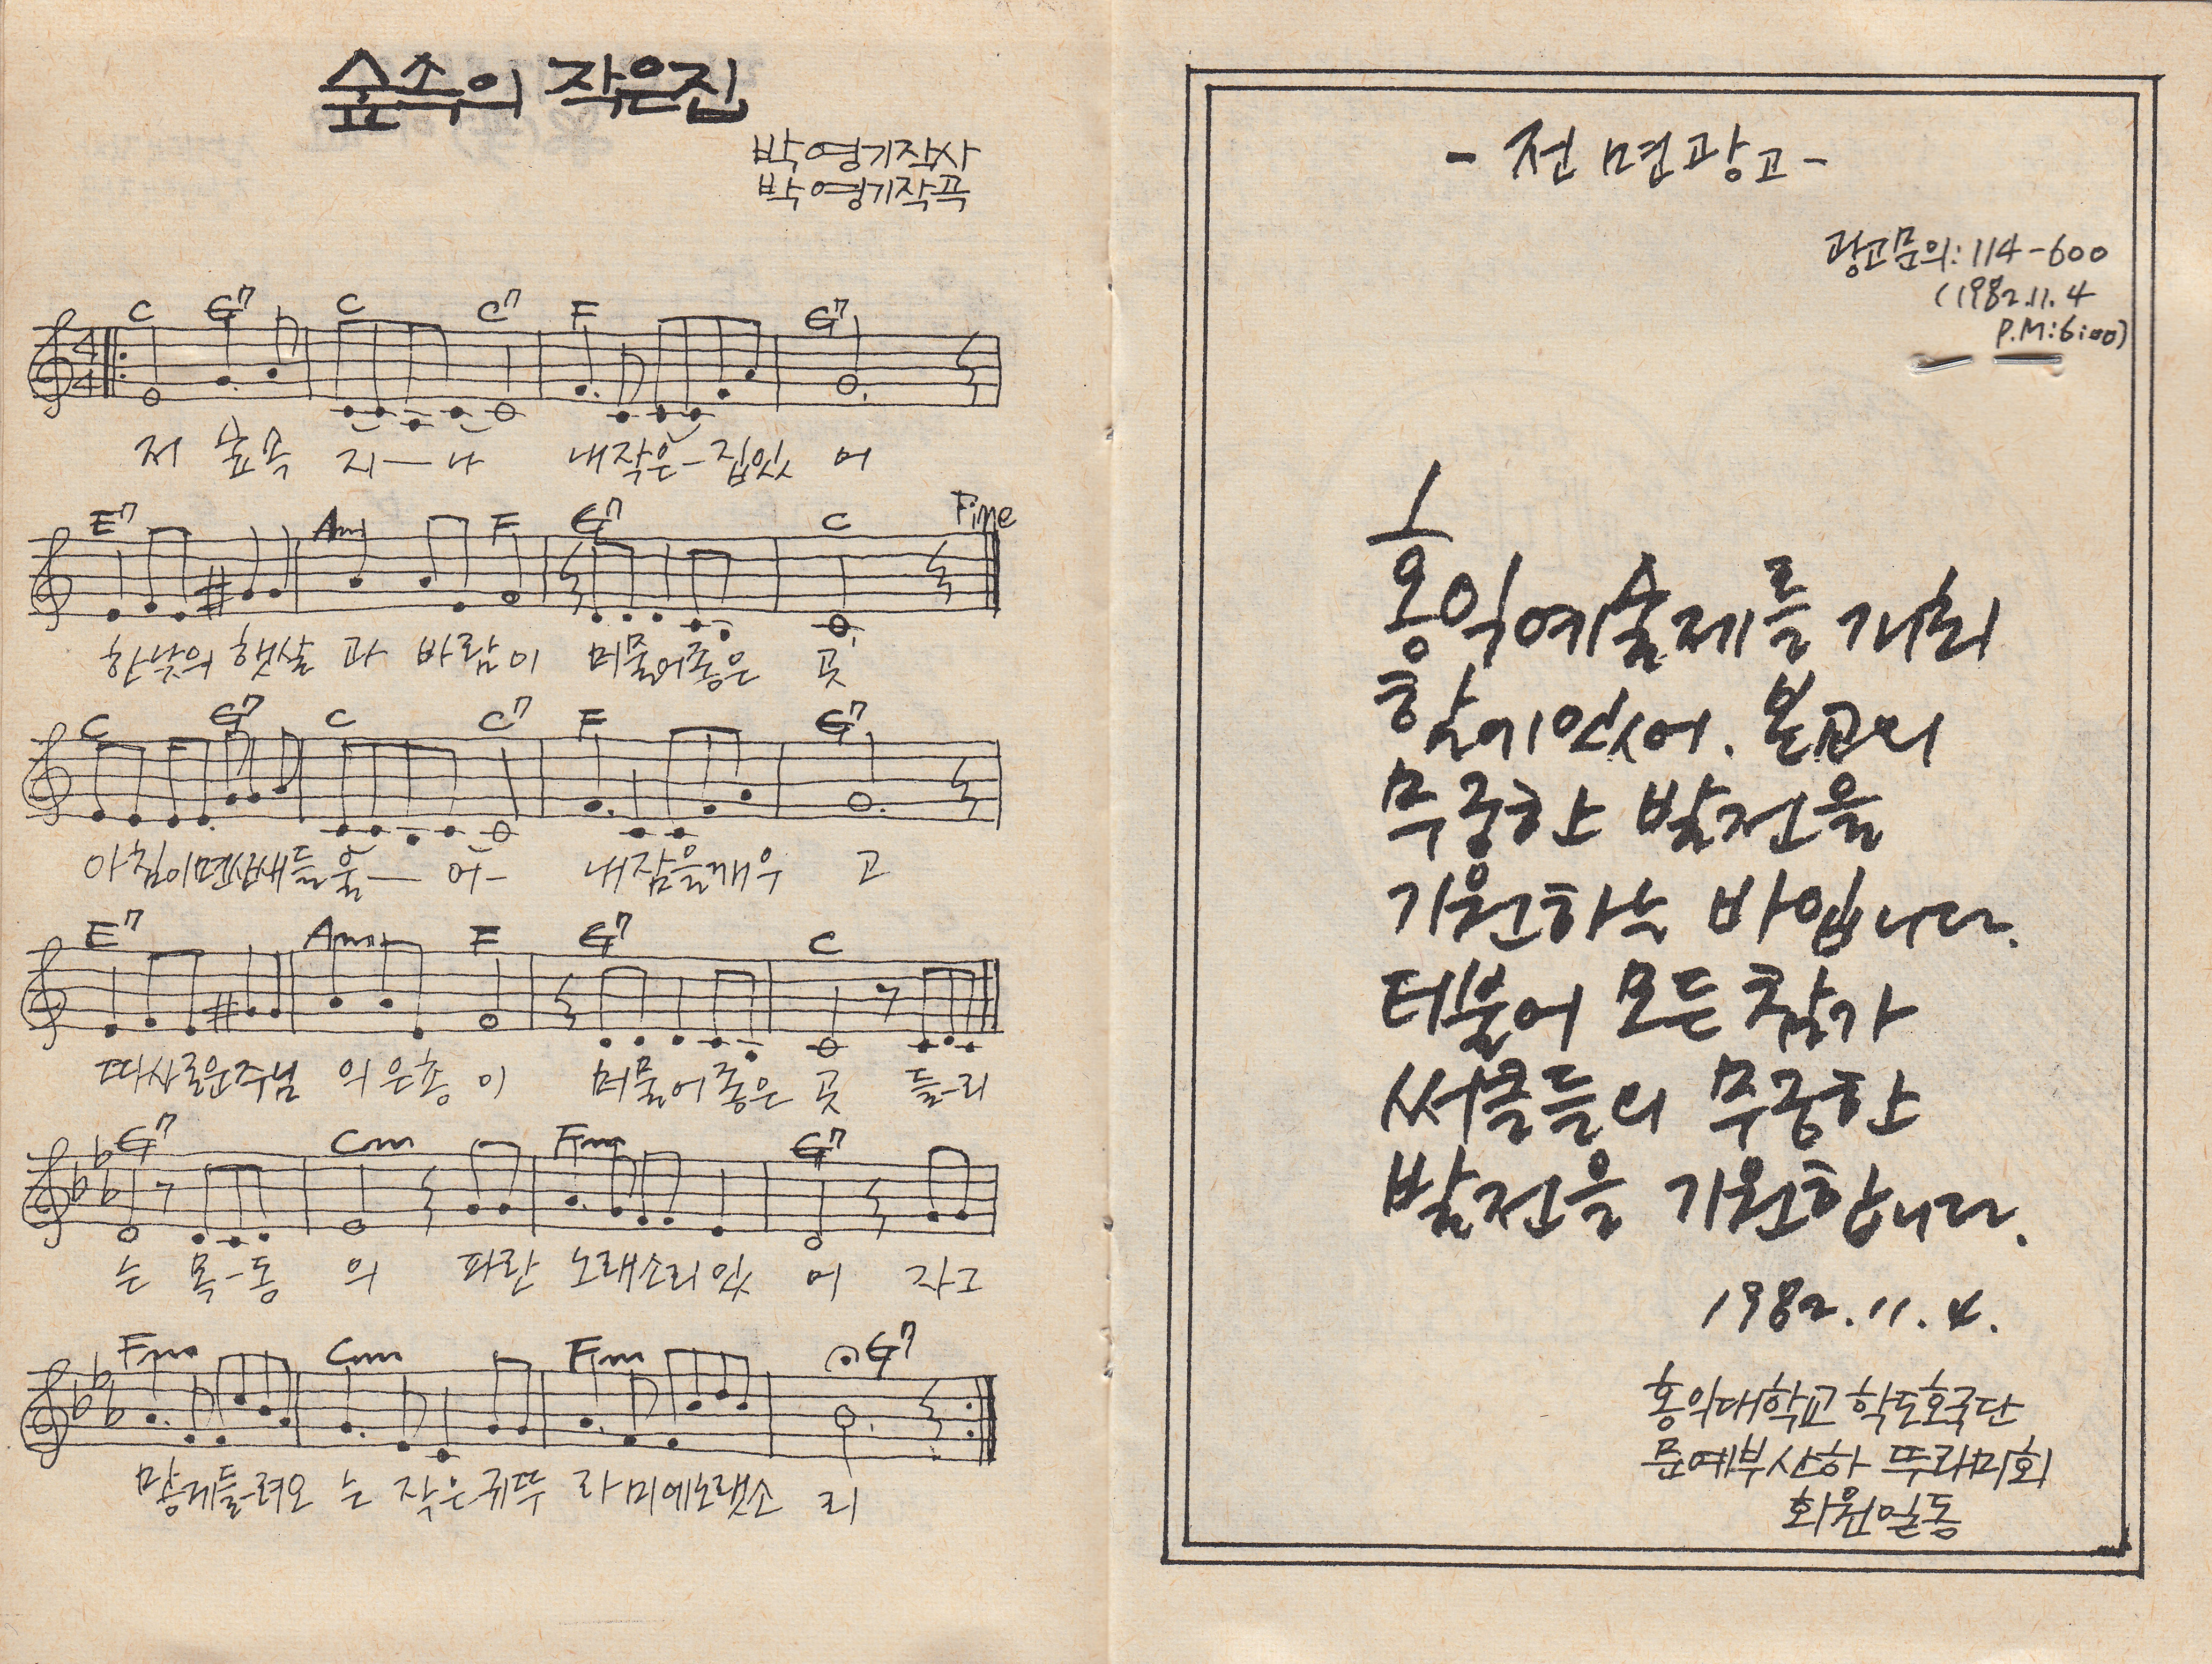 숲속의 작은집
박영기작사
박영기작곡
C G7 C C7 F G7
4
4
저 숲속 지—나 내작은-집있 어
E7 Am F G7 C Fine
한낮의 햇살 과 바람이 머물어좋은 곳
C G7 C C7 F G7
아침이면산새들울— 어- 내잠을깨우 고
E7 Am F G7 C
따사로운주님 의은총 이 머물어좋은 곳 들-리
G7 Cm Fm G7
는 목-동 의 파란 노래소리있 어 자그
Fm Cm Fm G7
맣게들-려오 는 작은귀뚜 라미에노랫소 리
- 전면광고 -
광고문의: 114-600
(1982.11.4
P.M:6:00)
홍익예술제를 개최
함에있어. 본교의
무궁한 발전을
기원하는 바입니다.
더불어 모든 참가
써클들의 무궁한
발전을 기원합니다.
1982.11.4.
홍익대학교 학도호국단
문예부산하 뚜라미회
회원일동